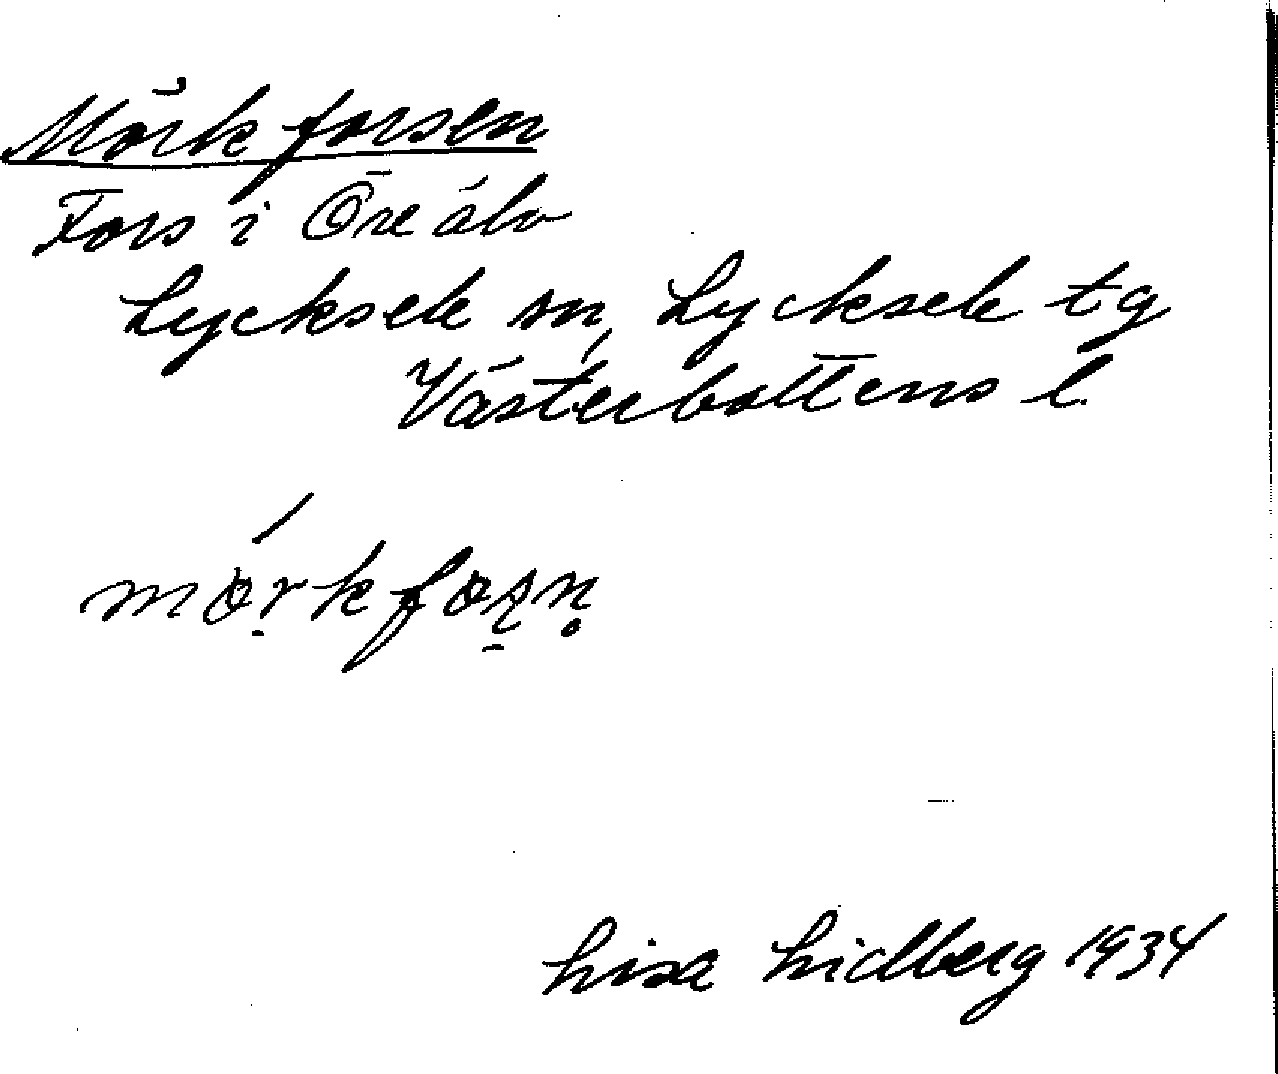 Mörkforsen
Fors i Öre älv
Lycksele sn, Lycksele tg
Västerbottens l.
mörkfosn
Lisa Lidberg 1934